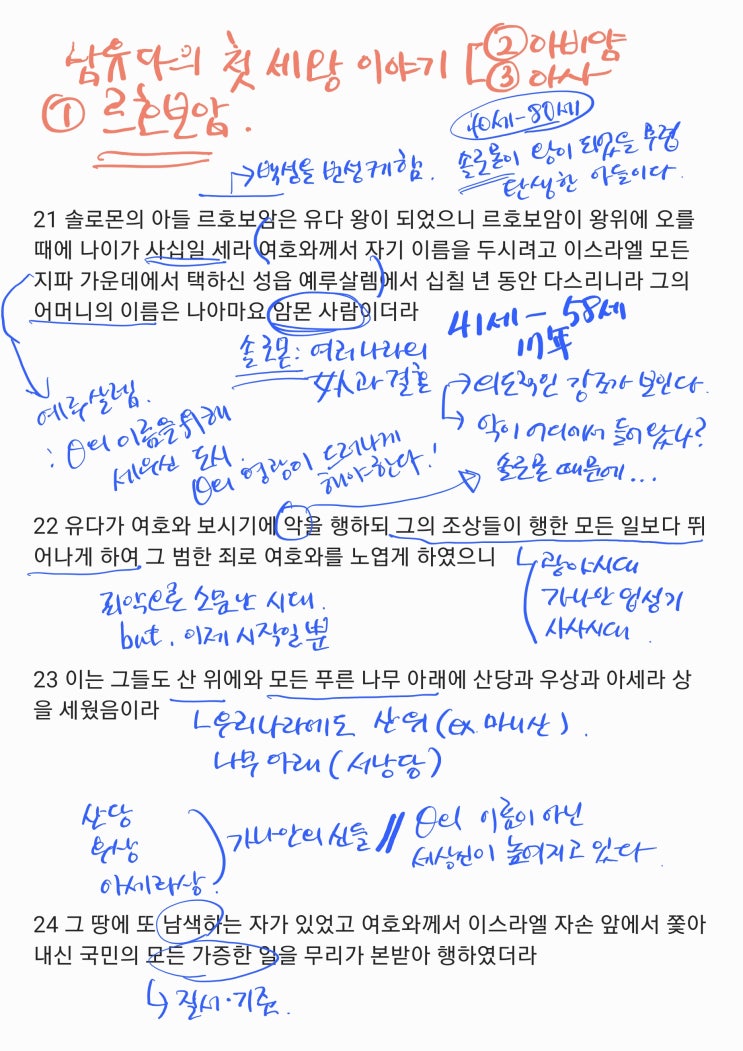 남유다의 첫 세왕 이야기 [② 아비얌
③ 아사
① 르호보암.
40세-80세
백성을 번성케함.
솔로몬이 왕이 되었을 무렵
탄생한 아들이다.
21 솔로몬의 아들 르호보암은 유다 왕이 되었으니 르호보암이 왕위에 오를
때에 나이가 사십일 세라 여호와께서 자기 이름을 두시려고 이스라엘 모든
지파 가운데에서 택하신 성읍 예루살렘에서 십칠 년 동안 다스리니라 그의
어머니의 이름은 나아마요 암몬 사람이더라
41세 - 58세
17年
솔로몬: 여러나라의
女人과 결혼
의도적인 강조가 보인다.
악이 어디에서 들어왔나?
솔로몬 때문에...
예루살렘.
: 이름을 위해
세우신 도시.
영광이 드러나게
해야한다!
22 유다가 여호와 보시기에 악을 행하되 그의 조상들이 행한 모든 일보다 뛰
어나게 하여 그 범한 죄로 여호와를 노엽게 하였으니
광야시대
가나안 입성기
사사시대.
죄악으로 소문난 시대.
but. 이제 시작일 뿐
23 이는 그들도 산 위에와 모든 푸른 나무 아래에 산당과 우상과 아세라 상
을 세웠음이라
우리나라에도 산위(ex 마니산).
나무 아래(서낭당)
산당
우상
아세라상.
가나안의 신들 //
이름이 아닌
세상신이 높여지고 있다.
24 그 땅에 또 남색하는 자가 있었고 여호와께서 이스라엘 자손 앞에서 쫓아
내신 국민의 모든 가증한 일을 무리가 본받아 행하였더라
질서·기준.